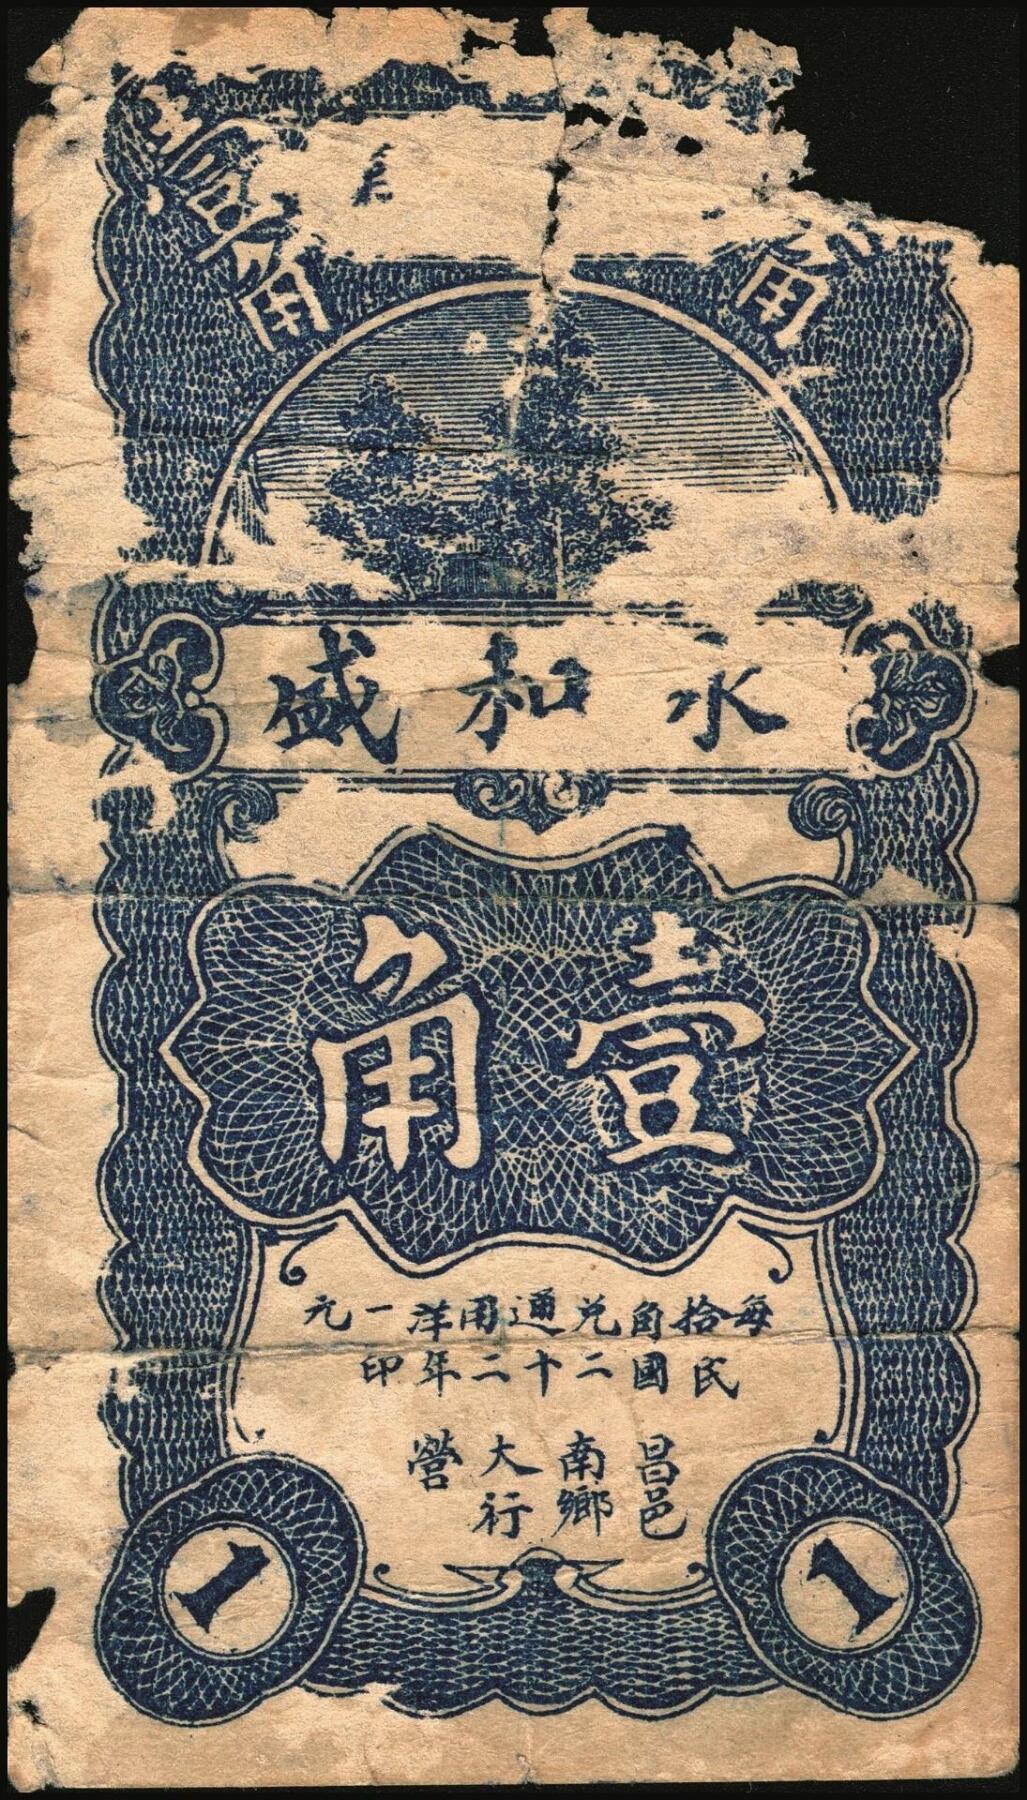 壹角
角
永和盛
壹角
每拾角兑通用洋一元
民國二十二年印
昌邑南鄉大行營
1
1